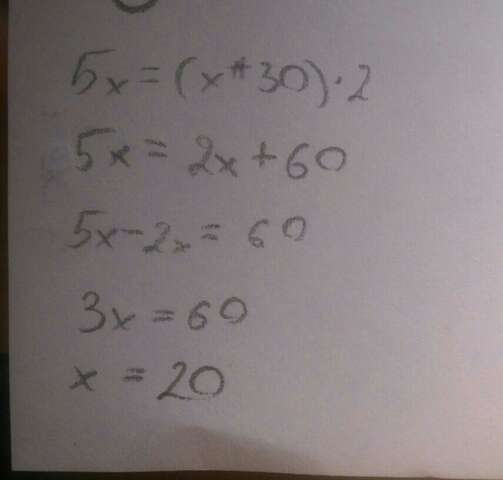 5x = (x + 30) · 2
5x = 2x + 60
5x - 2x = 60
3x = 60
x = 20